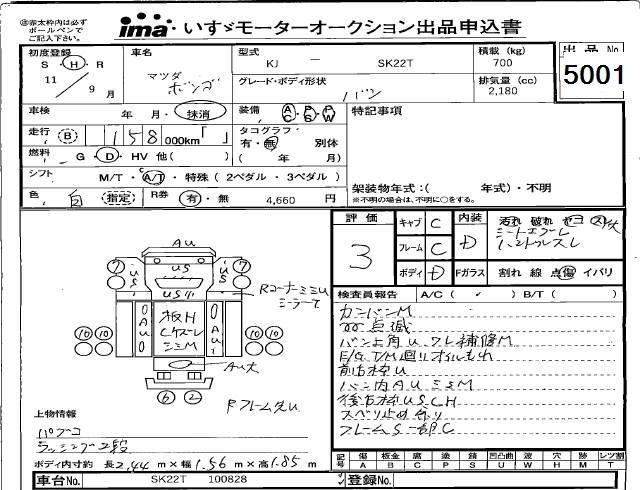 ㊟赤太枠内は必ず
ボールペンで
ご記入下さい。
ima いすゞモーターオークション出品申込書
初度登録 車名 型式 積載 (kg) 出品 No
S ・ H ・ R KJ ー SK22T 700
11 / 9 月 マツダ ボンゴ グレード・ボディ形状 排気量 (cc) 5001
バン 2,180
車検 年 月・抹消 装備 AC PS PW 特記事項
走行 B 158 000km「 」 タコグラフ
有・無 別体
燃料 G・D・HV 他( ) ( 年 月)
シフト M/T・CA/T・特殊 (2ペダル・3ペダル)
架装物年式:( 年式)・不明
色 白 指定 R券 有・無 4,660 円 ※不明の場合は、不明に○をする。
評価 キャブ C 内装 汚れ 破れ ヤコ
3 フレーム C D シートエグレ
ボディ D Fガラス 割れ 線 点 傷 イバリ
検査員報告 A/C ( ) B/T ( )
カンバンM
バン上角U ワレ補修M
E/G T/M廻りオイルもれ
前右枠U
バン内AUミミM
後右枠USCH
スベリ止め有り
フレームS一部C
AU
US
US
US
USミ
Rコーナーミミ U
ミラーフ
板H
Cケズレ
ミミM
0AU0
0AU
AU大
7
7
10 10
10 10
6 2
Rフレーム先U
上物情報
パブコ
ラッシング2段
ボディ内寸約 長2.44 m×幅1.56 m×高1.85 m
記号 傷 板金 腐 塗 錆 凹凸曲 波 穴 跡 レツ割
A B C P S U W H M T
車台No. SK22T 100828 登録No.